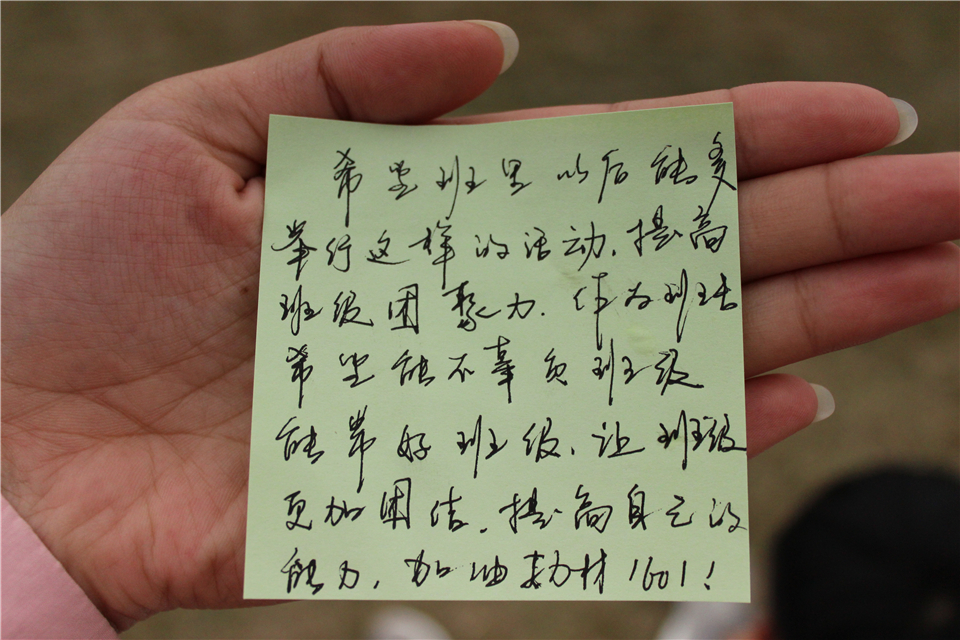 希望班里以后能多
举行这样的活动.提高
班级团聚力.作为班长
希望能不辜负班级
能带好班级、让班级
更加团结.提高自己的
能力,加油 材1601!